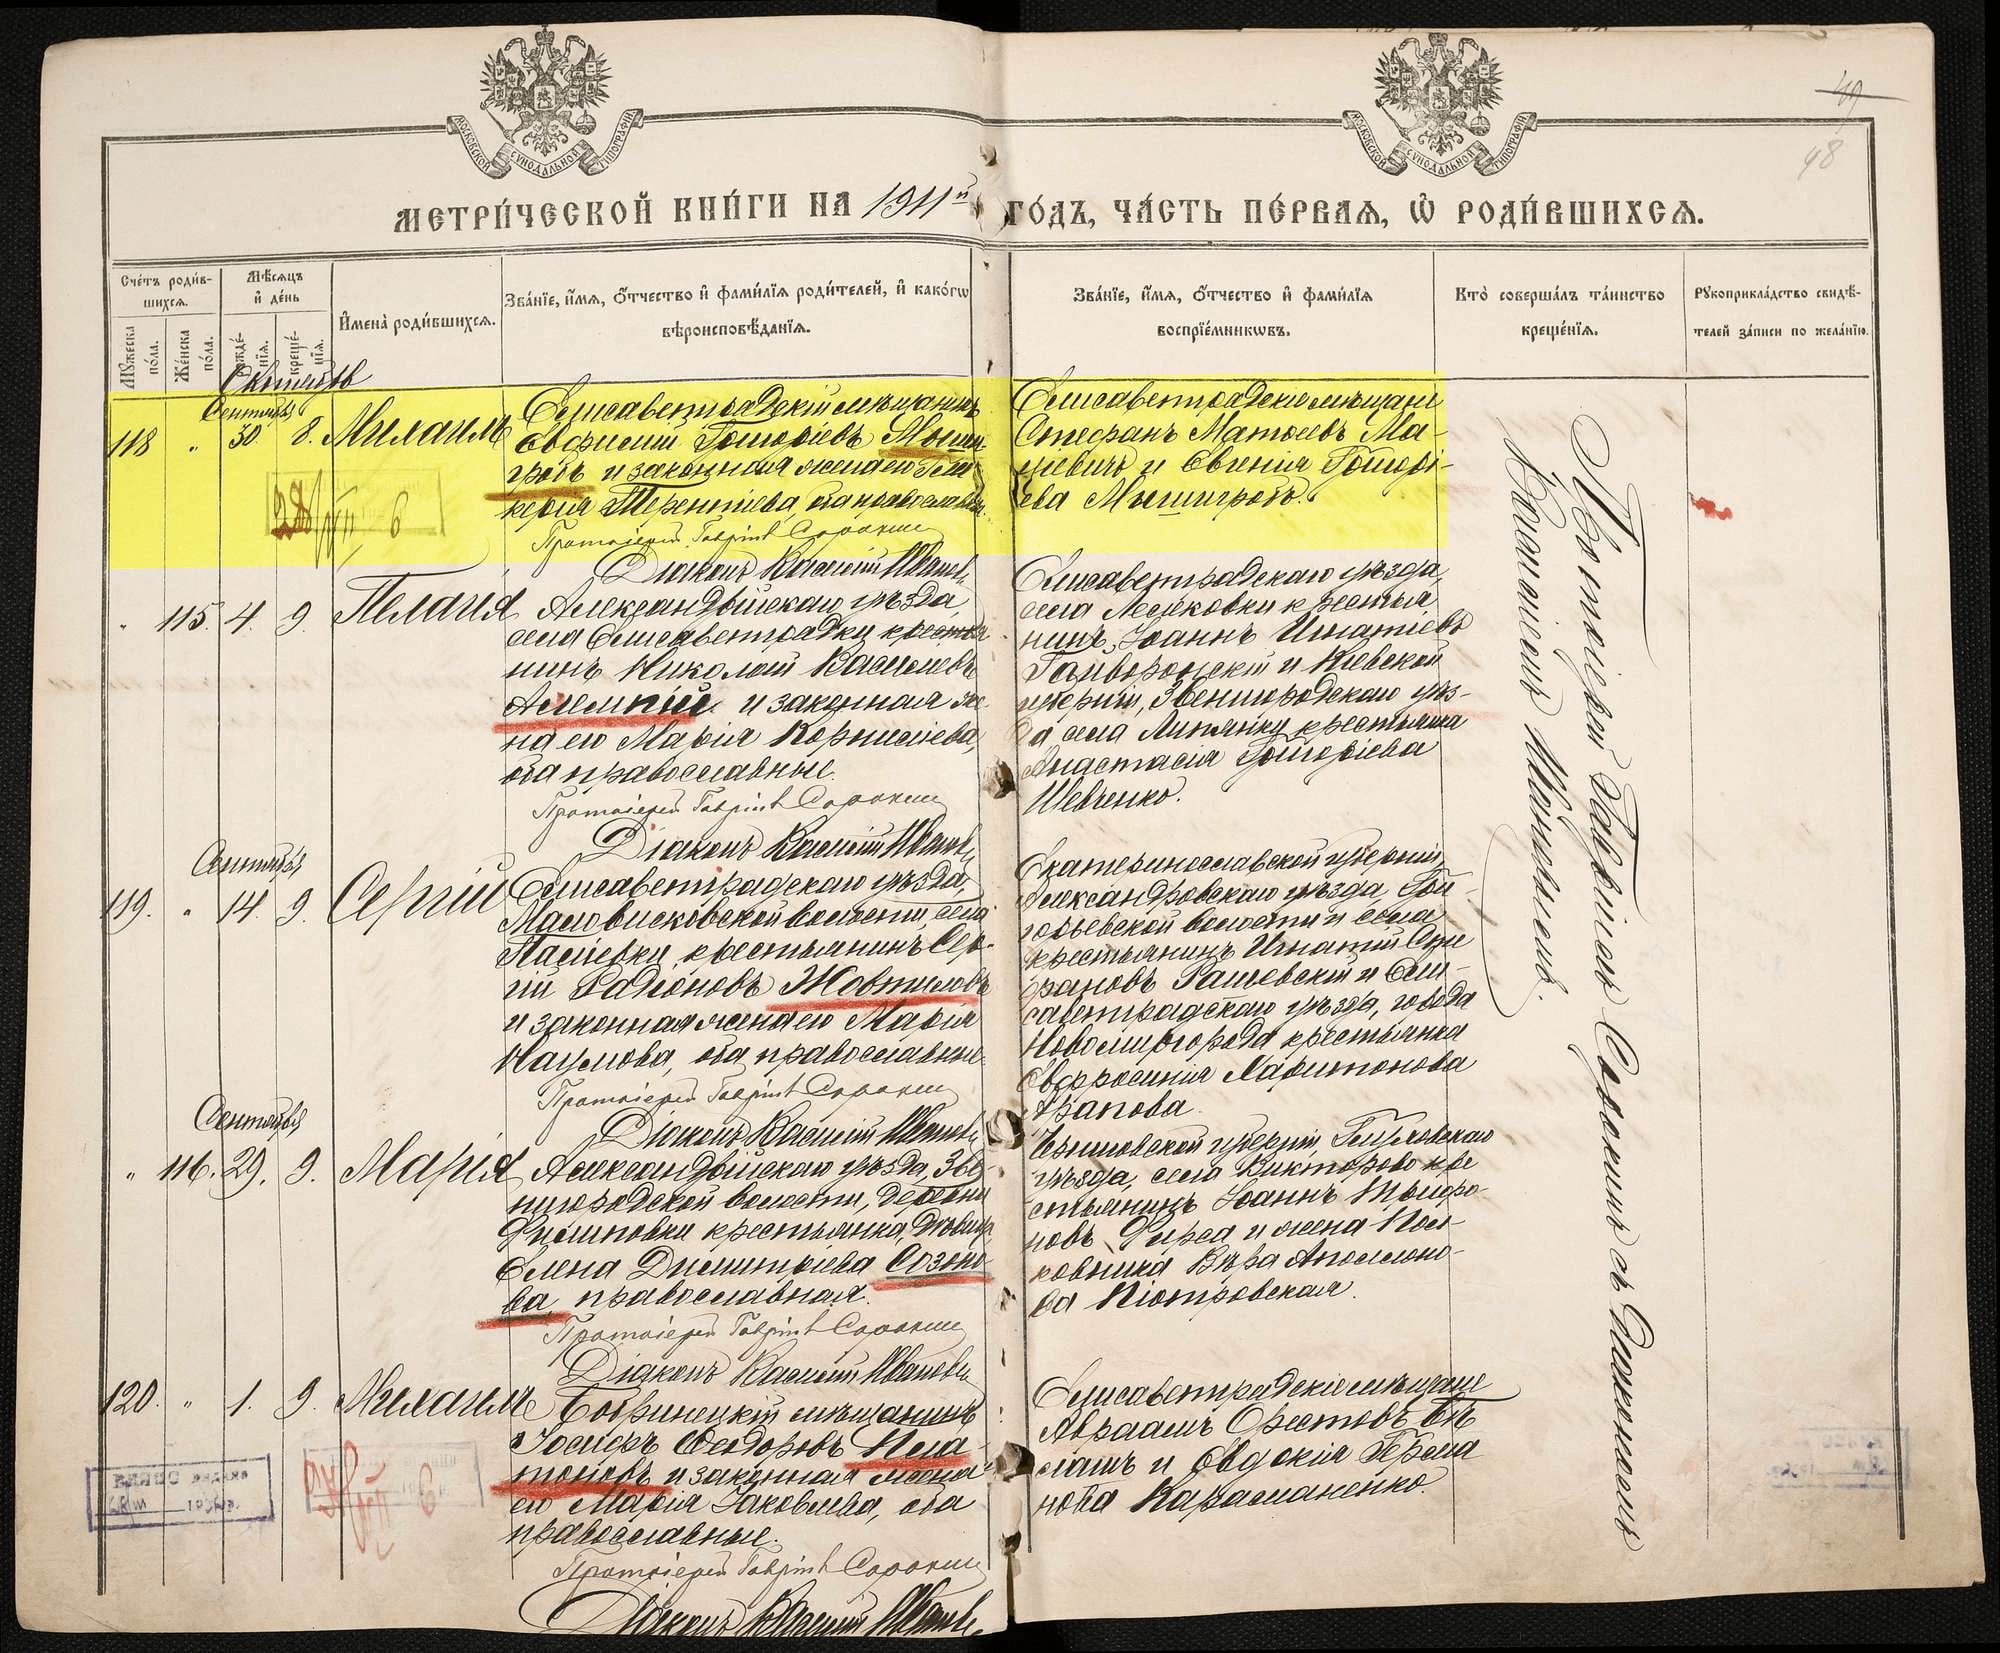 МОСКОВСКОЙ СѴНОДАЛЬНОЙ ТИПОГРАФІИ
МОСКОВСКОЙ СѴНОДАЛЬНОЙ ТИПОГРАФІИ
49
48
МЕТРИ́ЧЕСКОЙ КНИ́ГИ НА 1911й ГО́ДЪ, ЧА́СТЬ ПЕ́РВАЯ, Ѽ РОДИ́ВШИХСЯ.
Сче́тъ роди́в-
шихся.
Мꙋ́жеска по́ла.
Же́нска по́ла.
Мѣ́сяцъ
и҆ де́нь
рожде́-нїя.
креще́-нїя.
И҆мена̀ роди́вшихся.
Зва́нїе, и҆́мя, ѻ҆́тчество и҆ фами́лїя роди́телей, и҆ како́гѡ
вѣроисповѣ́данїя.
Зва́нїе, и҆́мя, ѻ҆́тчество и҆ фами́лїя
воспрїе́мникѡвъ.
Кто̀ соверша́лъ та́инство
креще́нїя.
Рꙋкоприкла́дство свидѣ́-
телей за́писи по жела́нїю.
Октябрь
Сентября
118 " 30. 8. Михаилъ
Елисаветградскій мѣщанинъ
Евфимій Григоріевъ Мыши-
гробъ и законная жена его Гли-
керія Терентіева, оба православн.
Протоіерей Гавріилъ Сорокинъ
Діаконъ Василій Ивановъ
Елисаветградскіе мѣщане
Стефанъ Матѳеевъ Ма-
ціевичъ и Евгенія Григорі-
ева Мышигробъ.
" 115. 4. 9. Пелагія
Александрійскаго уѣзда,
села Елисаветградки крестья
нинъ Николай Василіевъ
и законная же-
на его Марія Корниліева,
оба православные.
Протоіерей Гавріилъ Сорокинъ
Діаконъ Василій Ивановъ
Елисаветградскаго уѣзда,
села Лелековки крестья
нинъ Іоаннъ Игнатіевъ
Гайворонскій и Кіевской
губерніи, Звенигородскаго уѣз-
да села Липянки крестьянка
Анастасія Григоріева
Шевченко.
Сентября
119. " 14. 9. Сергій
Елисаветградскаго уѣзда,
Маловисковской волости, села
крестьянинъ Сер-
гій Родіоновъ Жовтиловъ
и законная жена его Марія
Наумова, оба православные.
Протоіерей Гавріилъ Сорокинъ
Діаконъ Василій Ивановъ
Екатеринославской губерніи,
Александровскаго уѣзда, Гри-
горьевской волости и села
крестьянинъ Игнатій Сте
фановъ Рашевскій и Ели-
саветградскаго уѣзда, города
Новомиргорода крестьянка
Евфросинія Харитонова
Арапова.
Сентября
" 116. 29. 9. Марія
Александрійскаго уѣзда, Зве-
нигородской волости, деревни
Филиповки крестьянка, дѣвица
Елена Димитріева Созоно-
ва, православная.
Протоіерей Гавріилъ Сорокинъ
Діаконъ Василій Ивановъ
Черниговской губерніи, Глуховскаго
уѣзда, села Викторово кре
стьянинъ Іоаннъ Трифо-
новъ Фирса и жена Пол-
ковника Вѣра Аполлоно-
ва Піотровская.
120. " 1. 9. Михаилъ
Бобринецкій мѣщанинъ
Іосифъ Ѳеодоровъ Пла-
тоновъ и законная жена
его Марія Іаковлева, оба
православные.
Протоіерей Гавріилъ Сорокинъ
Діаконъ Василій Ивановъ
Елисаветградскіе мѣщане
Авраамъ Орестовъ
и Евдокія Герма
нова Караманенко.
Протоіерей Гавріилъ Сорокинъ съ Діакономъ
Василіемъ Ивановымъ.